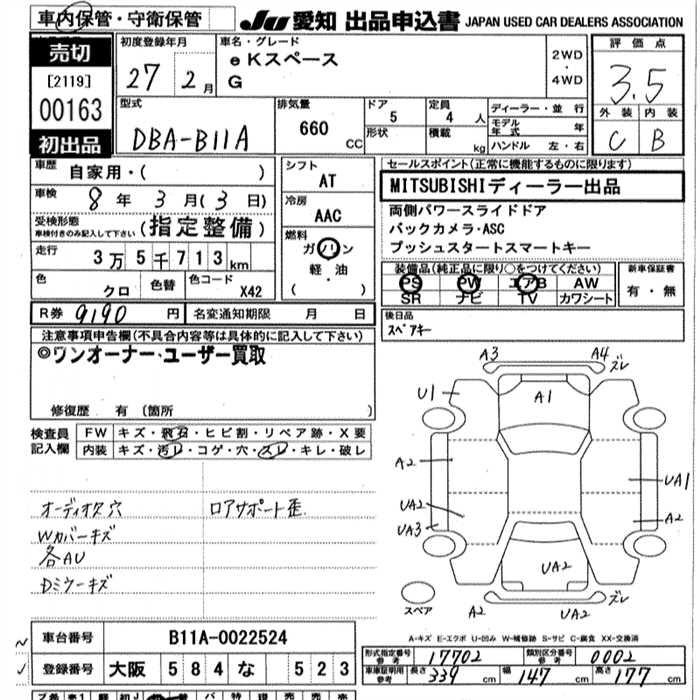 車内保管・守衛保管
JU 愛知 出品申込書 JAPAN USED CAR DEALERS ASSOCIATION
売切
[2119]
00163
初出品
初度登録年月
27年 2月
車名・グレード
eKスペース
G
2WD
・
4WD
評価点
3.5
外装 内装
C B
型式
DBA-B11A
排気量
660 CC
ドア
5
形状
定員
4 人
積載
kg
ディーラー・並行
モデル年式 年
ハンドル 左・右
車歴
自家用・( )
車検
8 年 3 月(3 日)
受検形態
車検付きのみ記入して下さい
(指定整備)
走行
3万5千713km
色
クロ
色替
色コード
X42
シフト
AT
冷房
AAC
燃料
ガソリン
軽・油
( )
セールスポイント(正常に機能するものに限ります)
MITSUBISHIディーラー出品
両側パワースライドドア
バックカメラ・ASC
プッシュスタートスマートキー
装備品(純正品に限り○をつけてください)
PS PW エアB AW
SR ナビ TV カワシート
新車保証書
有・無
R券 9190 円
名変通知期限 月 日
後日品
スペアキー
注意事項申告欄(不具合内容等は具体的に記入して下さい)
◎ワンオーナー・ユーザー買取
修復歴 有 (箇所 )
検査員
記入欄
FW キズ・飛石・ヒビ割・リペア跡・X要
内装 キズ・汚レ・コゲ・穴・スレ・キレ・破レ
オーディオ穴
ロアサポート歪
Wカバーキズ
各AU
Dミラーキズ
A3 A4 ズレ
U1 A1
A2
UA1
UA2
A2
UA3
UA2
ズレ
スペア
A2 UA2
A-キズ E-エクボ U-凹み W-補修跡 S-サビ C-腐食 XX-交換済
車台番号 B11A-0022524
登録番号 大阪 584 な 523
型式指定番号 参考 17702
類別区分番号 参考 0002
車庫証明用 参考 長さ 339 cm 幅 147 cm 高さ 177 cm